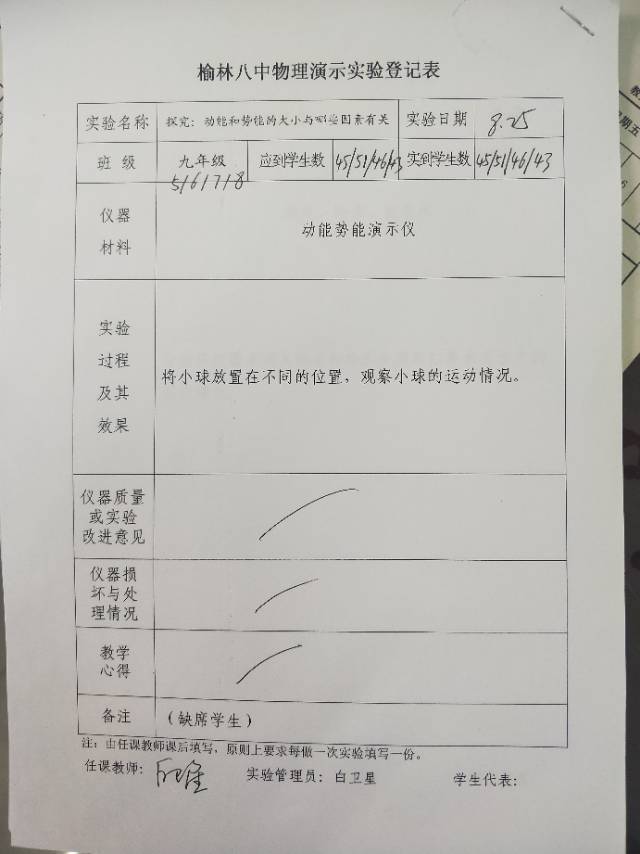 榆林八中物理演示实验登记表
实验名称 探究：动能和势能的大小与哪些因素有关 实验日期 8.25
班 级 九年级 应到学生数 45/51/46/43 实到学生数 45/51/46/43
5/6/7/8
仪器
材料
动能势能演示仪
实验
过程
及其
效果
将小球放置在不同的位置，观察小球的运动情况。
仪器质量
或实验
改进意见
仪器损
坏与处
理情况
教学
心得
备注 （缺席学生）
注：由任课教师课后填写，原则上要求每做一次实验填写一份。
任课教师： 实验管理员：白卫星 学生代表：